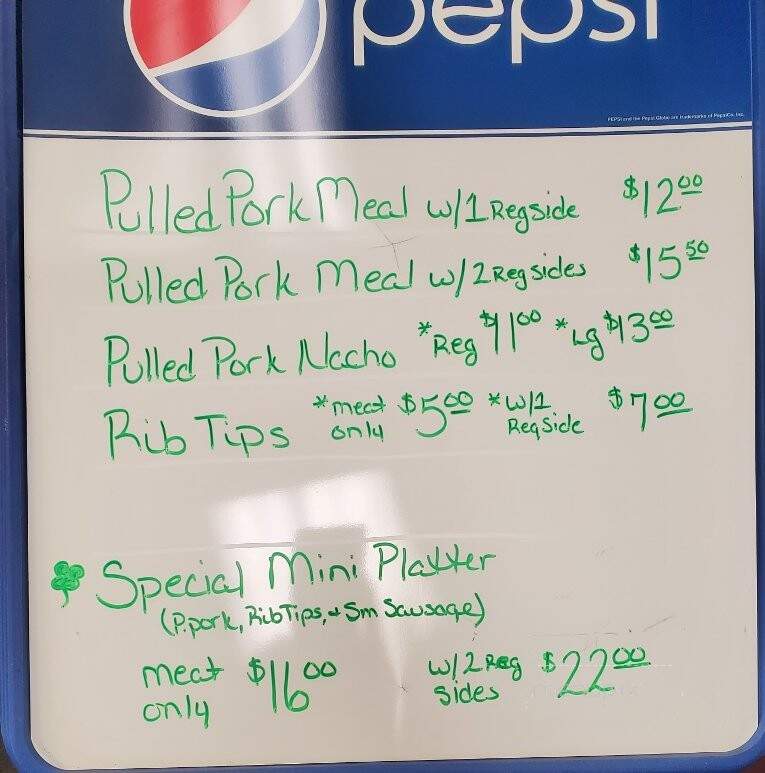 pepsi
PEPSI and the Pepsi Globe are trademarks of PepsiCo, Inc.
Pulled Pork Meal w/1 Reg side $12.00
Pulled Pork Meal w/2 Reg sides $15.50
Pulled Pork Nacho *Reg $11.00 *Lg $13.00
Rib Tips *meat only $5.00 *w/1 Reg Side $7.00
Special Mini Platter
(P.pork, Rib Tips, + Sm Sausage)
meat only $16.00 w/2 Reg sides $22.00